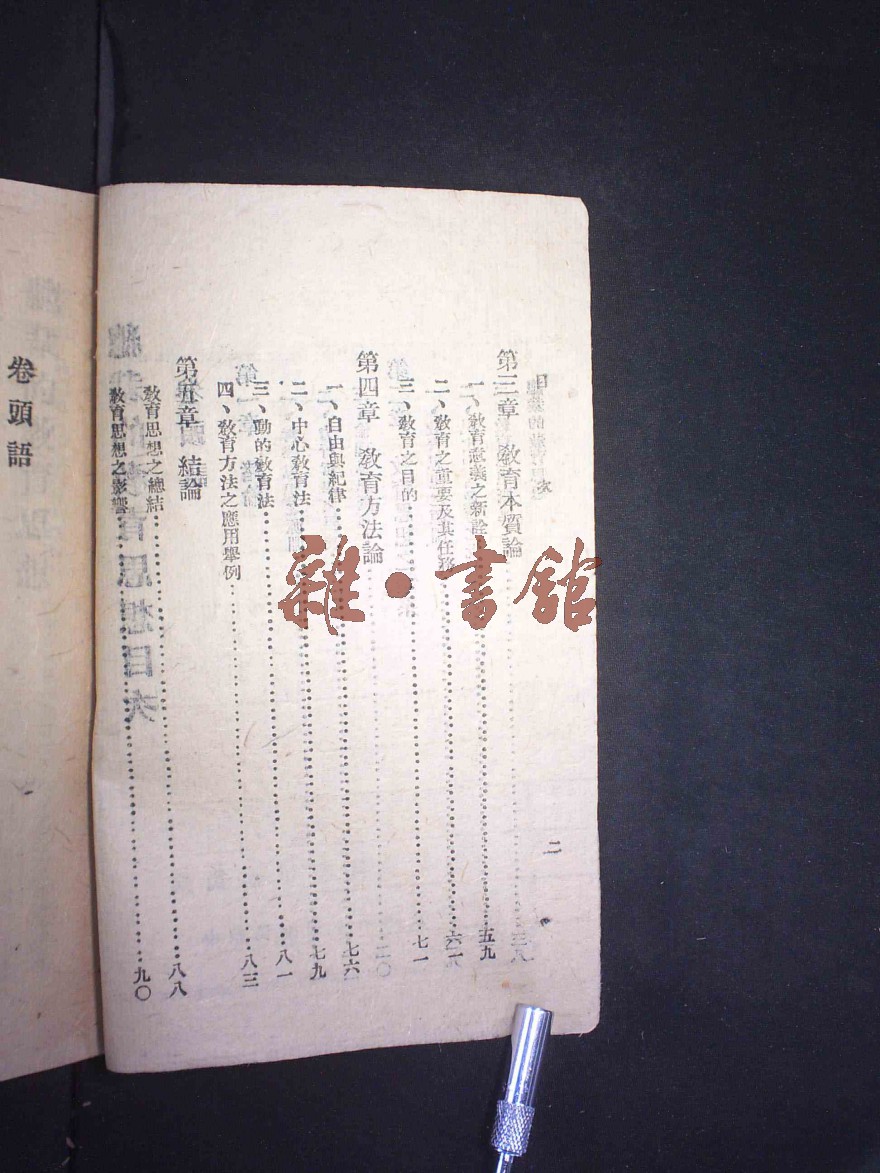 目次
二
第三章 教育本質論
一、教育意義之新詮……五九
二、教育之重要及其任務……六二
三、教育之目的……七一
第四章 教育方法論
一、自由與紀律……七六
二、中心教育法……七九
三、動的教育法……八一
四、教育方法之應用舉例……八三
第五章 結論
教育思想之總結……八八
教育思想之影響……九〇
卷頭語
雜·書館